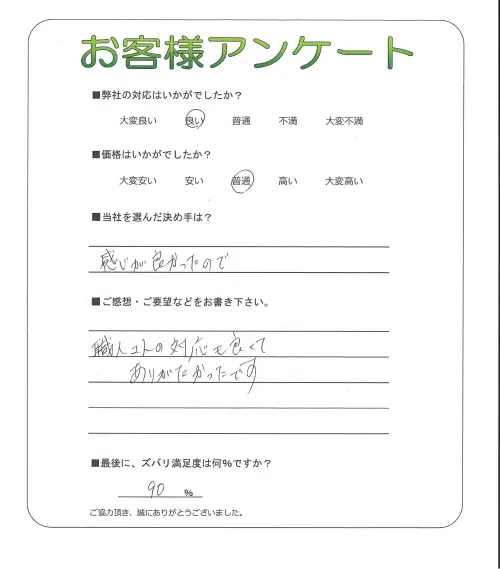 お客様アンケート
■弊社の対応はいかがでしたか？
大変良い 良い 普通 不満 大変不満
■価格はいかがでしたか？
大変安い 安い 普通 高い 大変高い
■当社を選んだ決め手は？
感じが良かったので
■ご感想・ご要望などをお書き下さい。
職人さんの対応も良くて
ありがたかったです
■最後に、ズバリ満足度は何%ですか？
90 %
ご協力頂き、誠にありがとうございました。